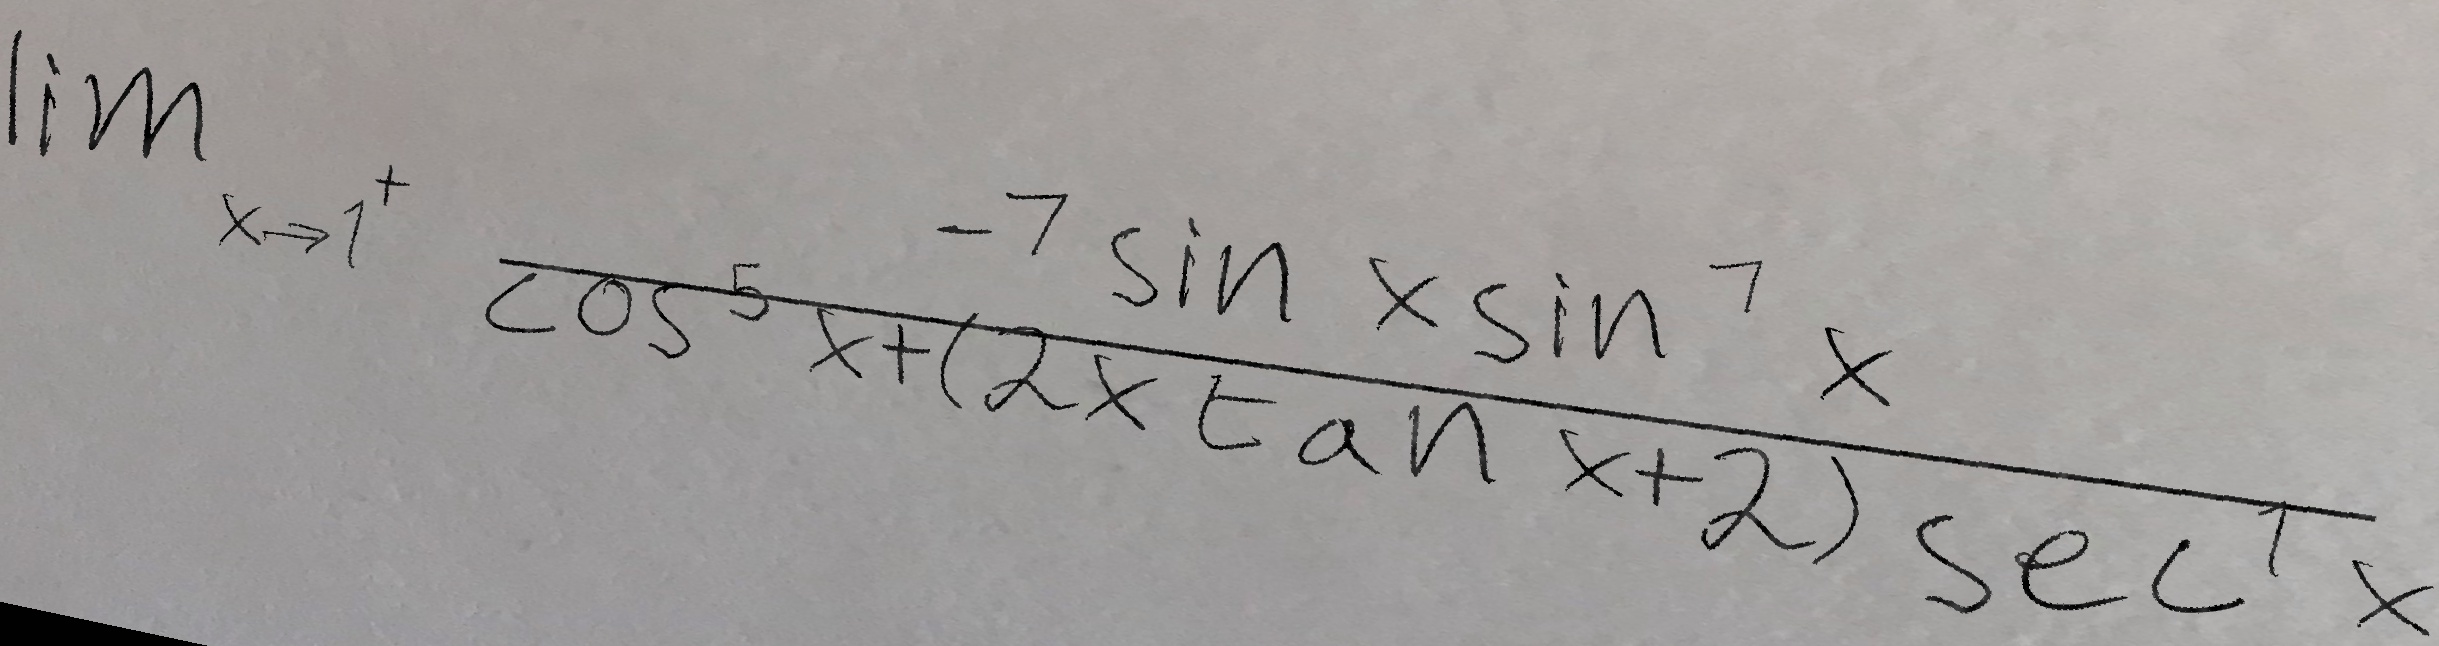 lim x→1⁺ -7 sin x sin⁷ x / cos⁵ x+(2x tan x+2) sec¹ x